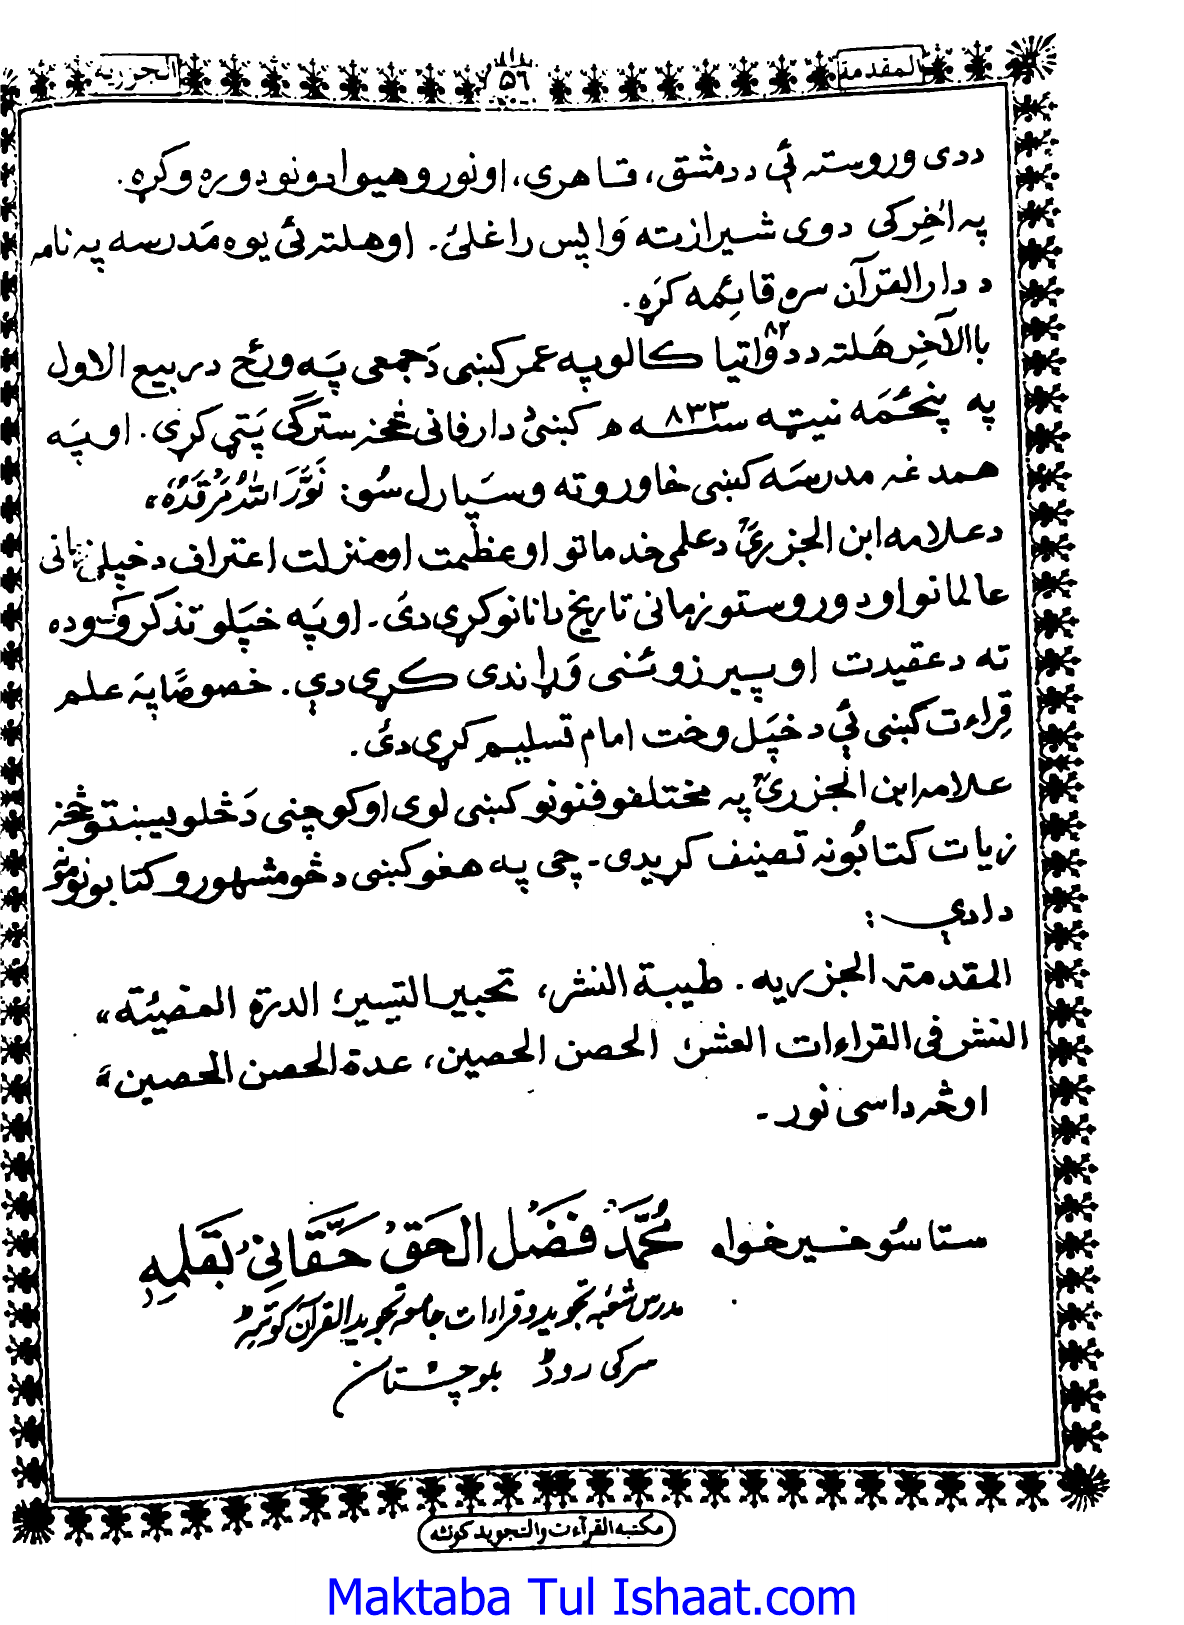 المقدمة
٥٦
الجزریه
ددی وروسته ئې د دمشق، قاهری، اونورو هیوادونو دوره وکړه.
په اٰخِر کی دوی شیراز ته وَاپس راغلئ. اوهلته ئې یوه مَدرسه په نامه
د دارالقرآن سره قائمه کړَه.
باالآخِر هَلته د دوَاتیا ٨٢ کالو په عمر کښی دَجمعی په ورځ د ربیع الاول
په پنځمَه نیټه سنـــ٨٣٣ــه ھ کښئ دارفانی څخه سترګی پَټی کړی. اوپَه
همدغه مدرسَه کښی خاوروته وسپارل سُو: نَوَّرَ اللهُ مَرْقَدَهٗ،
دعلامه ابن الجزریؒ دعلمی خدماتو اوعظمت اومنزلت اعتراف دخپلی زمانی
عالمانو اود وروستو زمانی تاریخ دانانو کړی دئ. اوپه خپَلو تذکرو کی دوه
ته دعقیدت اوپیرزوئنی وړاندی کړی دي. خصوصًا په علم
قِراءت کښی ئې دخپَل وخت امام تسلیم کړی دئ.
علامه ابن الجزریؒ په مختلفو فنونو کښی لوی اوکوچنی دَ څلویښتو څخه
زیات کتابُونه تصنیف کړیدی. چی په هغو کښی د څو مشهورو کتابونو نومونه
دادي:
المقدمته الجزریه. طیبة النشر، تحبیر التیسیر، الدرة المضیئته،
النشر فی القراءات العشر، الحصن الحصین، عدة الحصن الحصین،
اوڅه داسی نور.
ستاسُو خیرخواه مُحمَّد فَضْل الحَقْ حَقَّانِیْ بَقلمِهٖ
مدرس شعبه تجوید و قراءات جامعه تجوید القرآن کوئټه
سرکی روڈ بلوچستان
مکتبه القرآءت والتجوید کوئټه
Maktaba Tul Ishaat.com